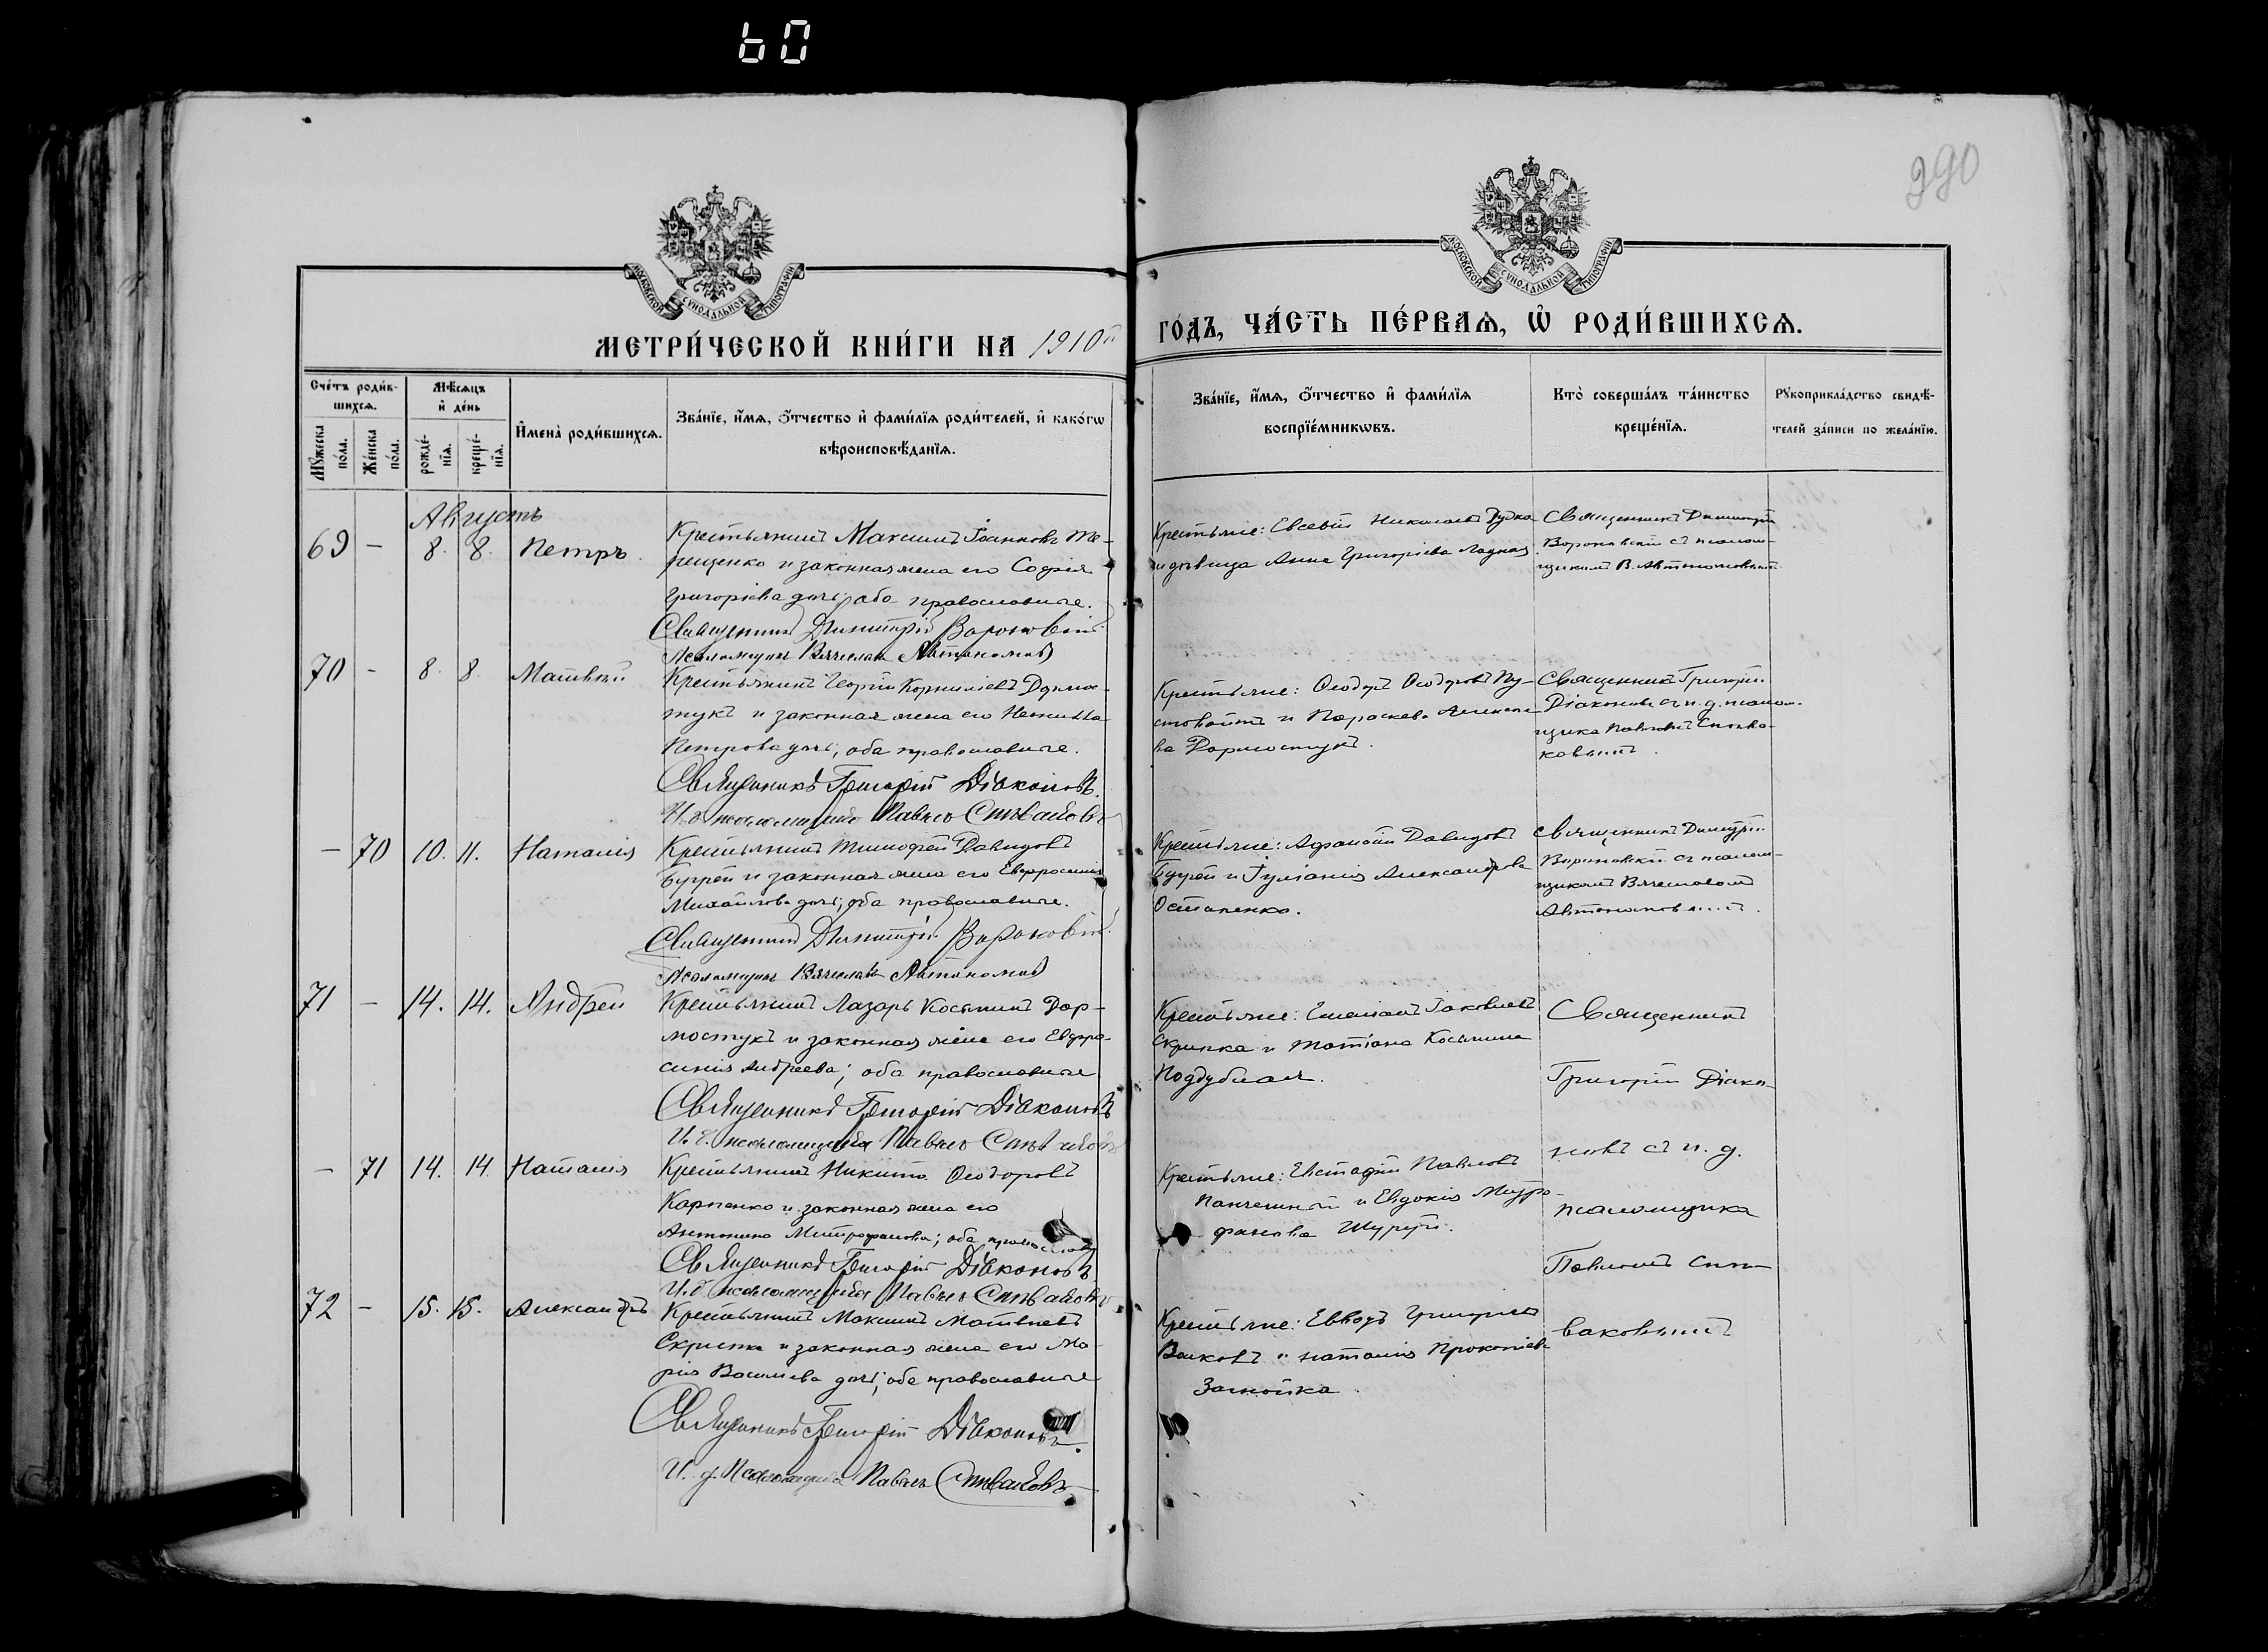 60
290
МОСКОВСКОЙ СѴНОДАЛЬНОЙ ТИПОГРАФІИ
МОСКОВСКОЙ СѴНОДАЛЬНОЙ ТИПОГРАФІИ
МЕТРИ́ЧЕСКОЙ КНИ́ГИ НА 1910й
ГО́ДЪ, ЧА́СТЬ ПЕ́РВАѦ, Ѡ҆ РОДИ́ВШИХСѦ.
Сче́тъ роди́в-
шихсѧ.
Мꙋ́жеска по́ла.
Же́нска по́ла.
Мѣ́сѧцъ
и҆ де́нь
рожде́-
нїѧ.
креще́-
нїѧ.
И҆мена̀ роди́вшихсѧ.
Зва́нїе, и҆́мѧ, ѻ҆́тчество и҆ фами́лїѧ роди́телей, и҆ како́гѡ
вѣроисповѣ́данїѧ.
Зва́нїе, и҆́мѧ, ѻ҆́тчество и҆ фами́лїѧ
воспрїе́мникѡвъ.
Кто̀ соверша́лъ та́инство
креще́нїѧ.
Рꙋкоприкла́дство свидѣ́-
телей за́писи по жела́нїю.
Августъ
69 – 8. 8. Петръ.
Крестьянинъ Максимъ Іоанновъ Те-
рещенко и законная жена его Софія
Григоріева дочь; оба православные.
Священникъ Димитрій Вороновскій
Псаломщикъ Вячеславъ Автономовъ
Крестьяне: Евсевій Николаевъ Дудка
и девица Анна Григоріева Ладная
Священникъ Димитрій
Вороновскій съ псалом-
щикомъ В. Автономовымъ
70 – 8. 8. Матвей
Крестьянинъ Георгій Корниліевъ Дармос-
тукъ и законная жена его
Петрова дочь; оба православные.
Священникъ Григорій Діаконовъ.
И. д. псаломщика Павелъ Спиваковъ
Крестьяне: Ѳеодоръ Ѳеодоровъ Пу-
стовойтъ и Параскева Алексее-
ва Дармостукъ.
Священникъ Григорій
Діаконовъ съ и. д. псалом-
щика Павломъ Спива-
ковымъ.
– 70 10. 11. Наталія
Крестьянинъ Тимофей Давидовъ
Бугрей и законная жена его Евфросинія
Михайлова дочь; оба православные.
Священникъ Димитрій Вороновскій
Псаломщикъ Вячеславъ Автономовъ
Крестьяне: Афанасій Давидовъ
Бугрей и Іуліанія Александрова
Остапенко.
Священникъ Димитрій
Вороновскій съ псалом-
щикомъ Вячеславомъ
Автономовымъ.
71 – 14. 14. Андрей
Крестьянинъ Лазарь Косьминъ Дар-
мостукъ и законная жена его Евфро-
синія Андреева; оба православные
Священникъ Григорій Діаконовъ
И. д. псаломщика Павелъ Спиваковъ
Крестьяне: Емеліанъ Іаковлевъ
Скрипка и Татіана Косьмина
Поддубная.
Священникъ
Григорій Діако-
новъ съ и. д.
псаломщика
Павломъ Спи-
ваковымъ
– 71 14. 14. Наталія
Крестьянинъ Никита Ѳеодоровъ
Карпенко и законная жена его
Антонина Митрофанова; оба православ.
Священникъ Григорій Діаконовъ
И. д. псаломщика Павелъ Спиваковъ
Крестьяне: Евстафій Павловъ
и Евдокія Митро-
фанова Шуруй.
72 – 15. 15. Александръ
Крестьянинъ Максимъ Матвіевъ
Скрипка и законная жена его Ма-
рія Васильева дочь; оба православные
Священникъ Григорій Діаконовъ.
И. д. Псаломщика Павелъ Спиваковъ
Крестьяне: Григоріевъ
Волковъ и Наталія Прокопіева